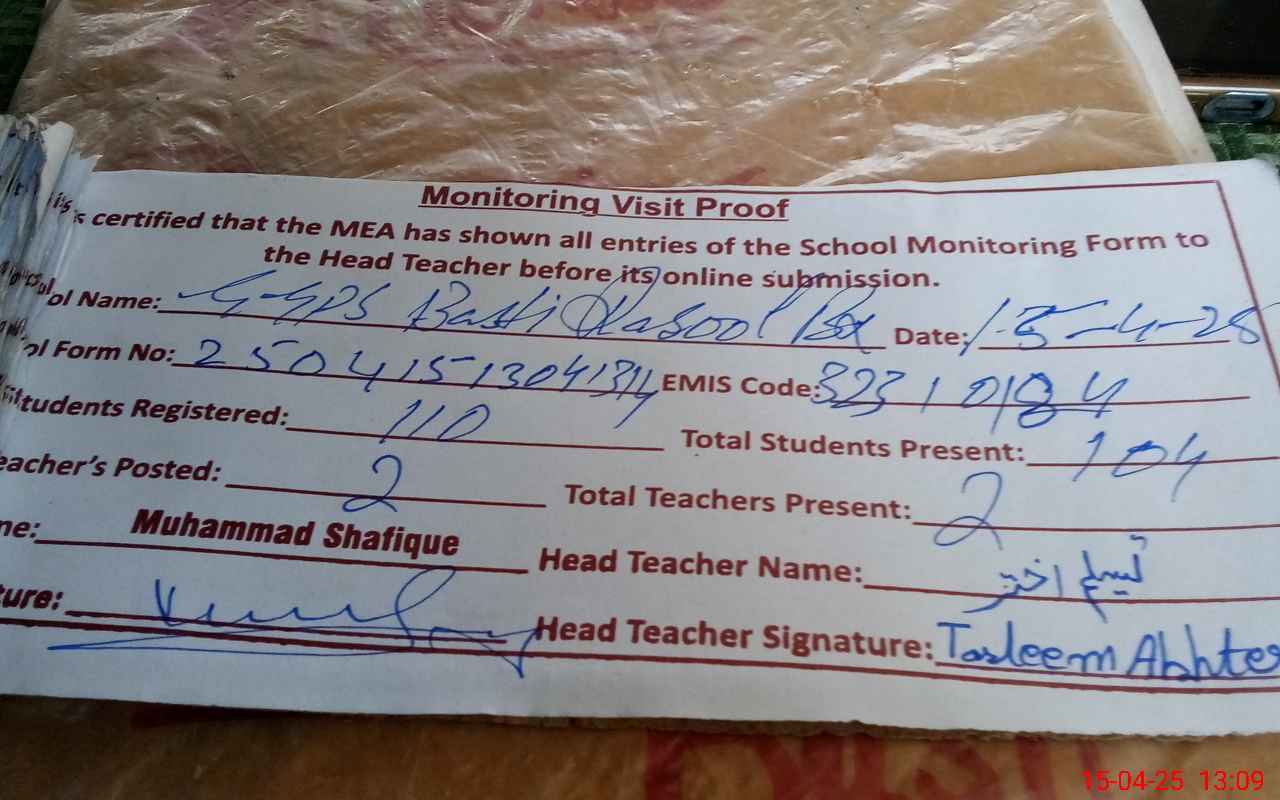 Monitoring Visit Proof
is certified that the MEA has shown all entries of the School Monitoring Form to
the Head Teacher before its online submission.
ol Name: GGPS Basti Rasool Bx Date: 15-4-25
ol Form No: 25041513041314 EMIS Code: 32310184
tudents Registered: 110 Total Students Present: 104
eacher's Posted: 2 Total Teachers Present: 2
ne: Muhammad Shafique Head Teacher Name: تسلیم اختر
ture: Head Teacher Signature: Tasleem Akhter
15-04-25 13:09